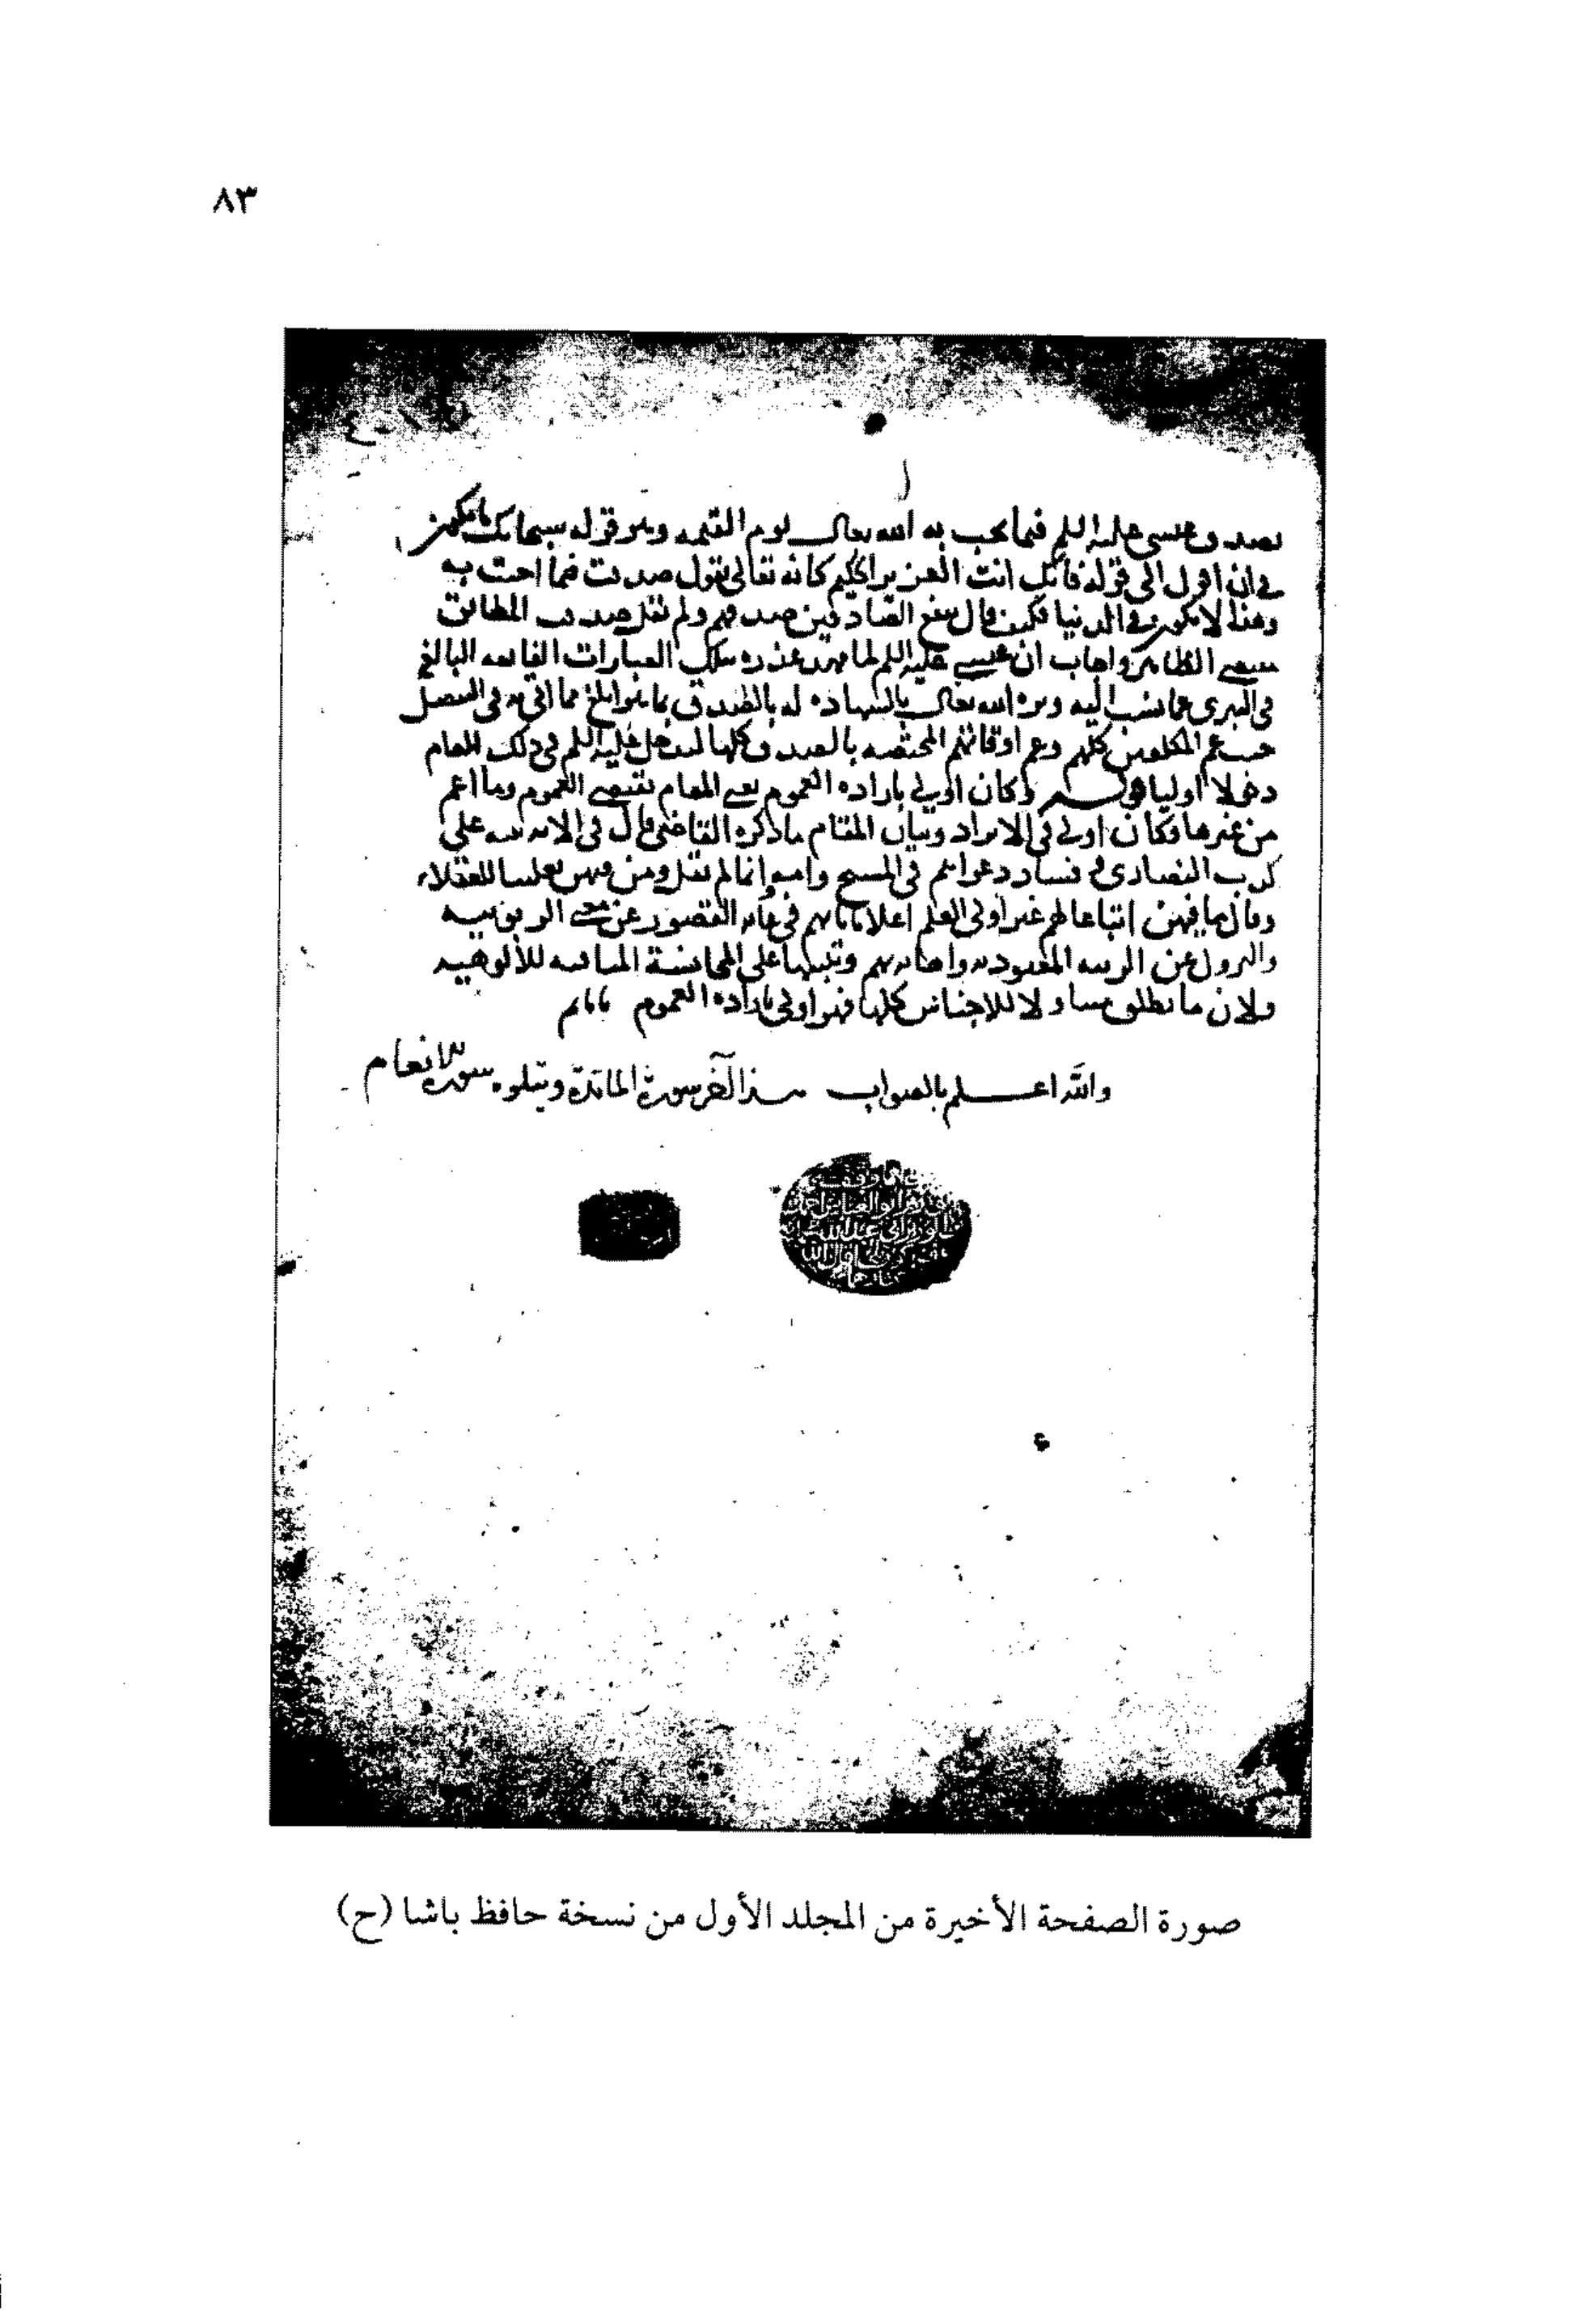 ٨٣
بصدق عيسى عليه السلم فيما يجيب به الله تعالى يوم القيمه وهو قوله سبحانك ما يكون
لي ان اقول الى قوله فانك انت العزيز الحكيم كانه تعالى يقول صدقت فيما اجبت به
وهذا لا يكون في الدنيا فكيف قال ينفع الصادقين صدقهم ولم يقل المطابق
الظاهر واجاب ان عيسى عليه السلم لما مهد عذره سلك العبارات الفايقه البالغه
في التبري عما نسب اليه الله تعالى بالشهاده له بالصدق بما هو ابلغ مما اتى به في التنصل
حيث عم المكلفين كلهم وعم اوقاتهم المختصه بالصدق كلها ليدخل عليه السلم في ذلك المقام
دخولا اوليا وكان اولى باراده العموم يعني المقام يقتضي العموم وما اعم
من غيرها فكان اولى في الايراد وبيان المقام ما ذكره القاضي قال في الايه تنبيه على
كذب النصارى وفساد دعواهم في المسيح وامه وانما لم يقل ومن فيهن تغليبا للعقلاء
وقال ما فيهن اتباعا لهم غير اولي العلم اعلاما بانهم في غايه القصور عن معنى الربوبيه
والنزول عن الرتبه المعبوديه واهانه بهم وتنبيها على المجانسة المنافيه للألوهيه
ولان ما يطلق متناولا للاجناس كلها فهو اولى باراده العموم
والله اعلم بالصواب هذا آخر سورة المائدة ويتلوه سورة الانعام
صورة الصفحة الأخيرة من المجلد الأول من نسخة حافظ باشا (ح)